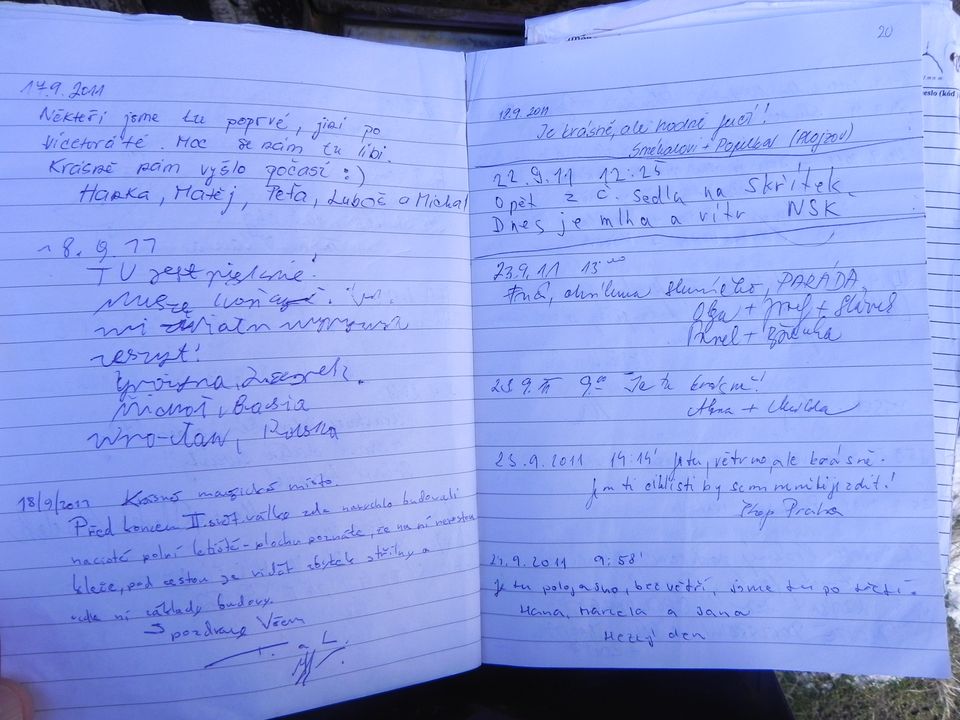 17.9.2011
Někteří jsme tu poprvé, jiní po
vícekráté. Moc se nám tu líbí.
Krásně nám vyšlo počasí :)
Hanka, Matěj, Péťa, Luboš a Michal
18.9.11
TU jest pięknie!
Muszę
mi wiatr wyrywa
zeszyt!
Grażyna,
Michał, Basia
Wrocław, Polska
18/9/2011 Krásné magické místo.
Před koncem II. svět. války zde narychlo budovali
nacisté polní letiště - plochu poznáte, že na ní nerostou
kleče, pod cestou je vidět zbytek střílny a
základy budovy.
S pozdravem Všem
a L
20
12.9.2011
Je krásně, ale hodně fučí!
22.9.11 12:25
Opět z Č. Sedla na Skřítek.
Dnes je mlha a vítr NSK
23.9.11 13.00
sluníčko, PARÁDA
Olga + Josef +
Pavel + Božena
9.00 Je tu krásně!
Alena +
23.9.2011 14:14' je tu větrno, ale krásně.
Jen ti cyklisti by sem neměli jezdit!
Praha
24.9.2011 9:58'
je tu polojasno, bezvětří, jsme tu po třetí.
Hana, Marcela a Jana
Hezký den